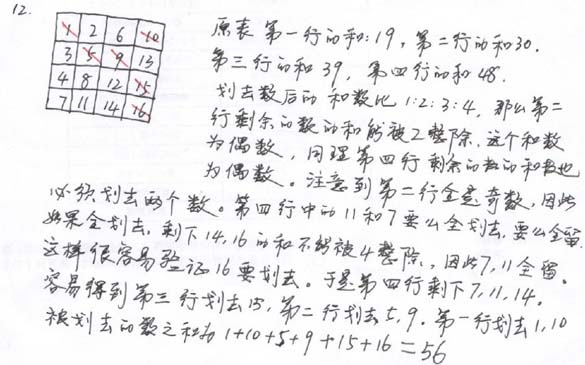 12.
1 2 6 10
3 5 9 13
4 8 12 15
7 11 14 16
原表第一行的和:19，第二行的和30.
第三行的和39，第四行的和48.
划去数后的和数比1:2:3:4，那么第二
行剩余的数的和能被2整除，这个和数
为偶数，同理第四行剩余的数的和数也
为偶数。注意到第二行全是奇数，因此
必须划去两个数。第四行中的11和7要么全划去，要么全留.
如果全划去，剩下14,16的和不能被4整除，因此7,11全留。
这样很容易验证16要划去。于是第四行剩下7,11,14.
容易得到第三行划去15，第二行划去5,9.第一行划去1,10
被划去的数之和为1+10+5+9+15+16=56